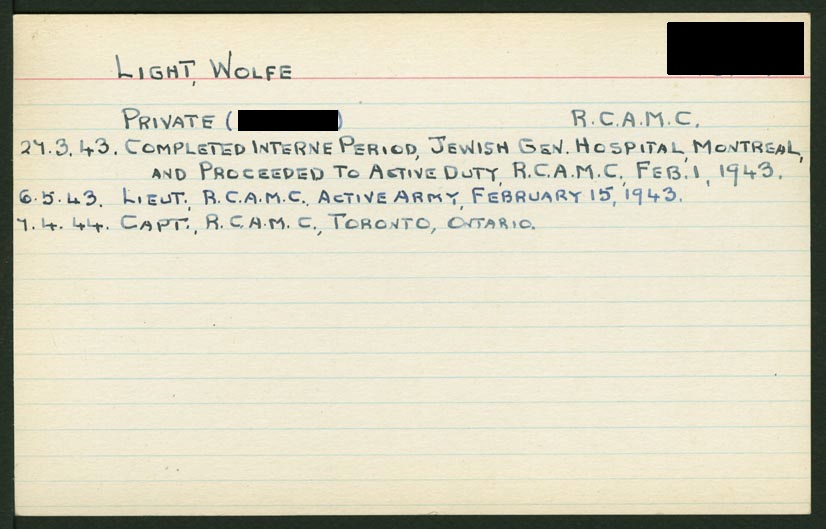 LIGHT, WOLFE
PRIVATE ( ) R.C.A.M.C.
27.3.43. COMPLETED INTERNE PERIOD, JEWISH GEN. HOSPITAL, MONTREAL,
AND PROCEEDED TO ACTIVE DUTY, R.C.A.M.C., FEB. 1, 1943.
6.5.43. LIEUT., R.C.A.M.C., ACTIVE ARMY, FEBRUARY 15, 1943.
7.4.44. CAPT., R.C.A.M.C., TORONTO, ONTARIO.